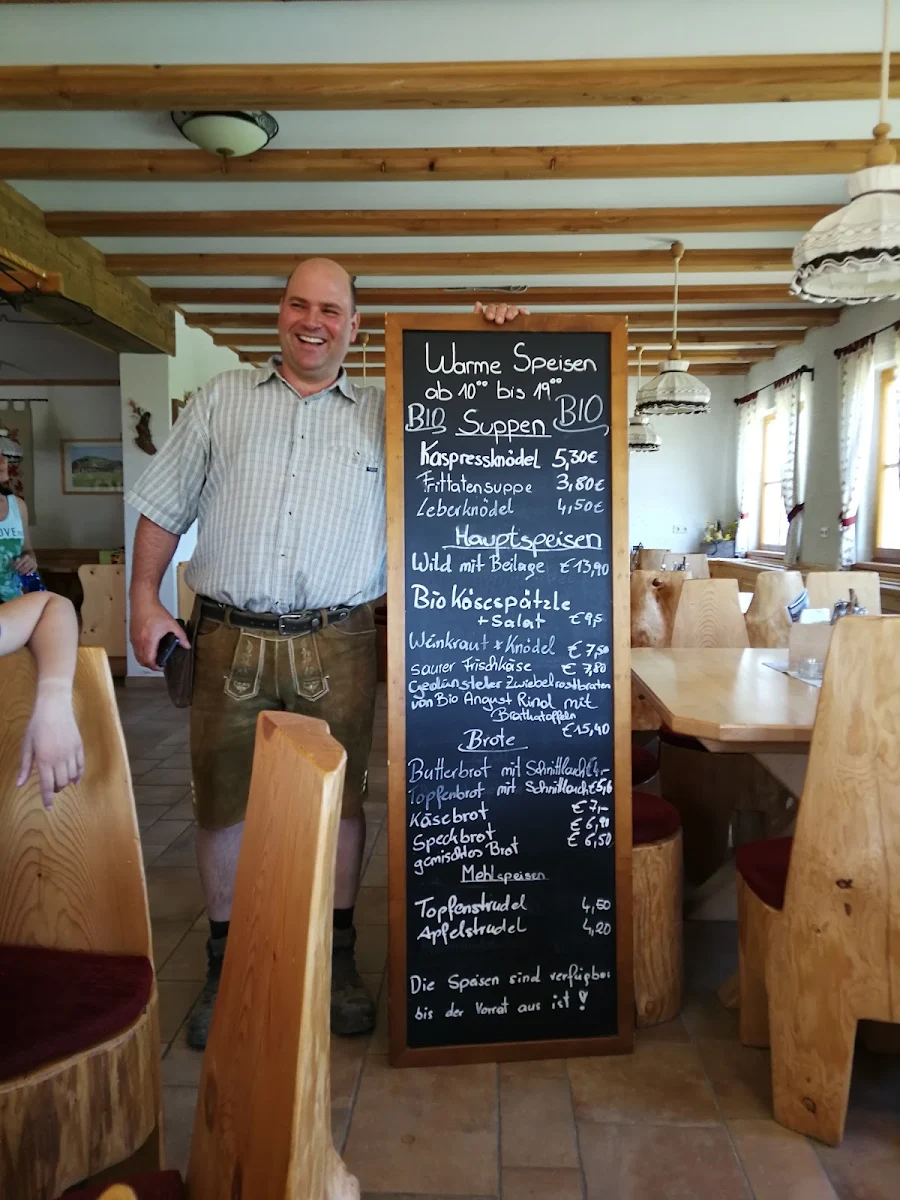 Warme Speisen
ab 10°° bis 19°°
BIO Suppen BIO
Kaspressknödel 5,30€
Frittatensuppe 3,80€
Leberknödel 4,50€
Hauptspeisen
Wild mit Beilage €13,90
Bio Käsespätzle
+ Salat €9,5
Weinkraut + Knödel € 7,50
saurer Frischkäse € 7,80
Gedünsteter Zwiebelrostbraten
von Bio Angust Rind mit
Bratkartoffeln
€15,40
Brote
Butterbrot mit Schnittlauch €4,-
Topfenbrot mit Schnittlauch €5,6
Käsebrot € 7,-
Speckbrot € 6,90
gemischtes Brot € 6,50
Mehlspeisen
Topfenstrudel 4,50
Apfelstrudel 4,20
Die Speisen sind verfügbar
bis der Vorrat aus ist !
OVE